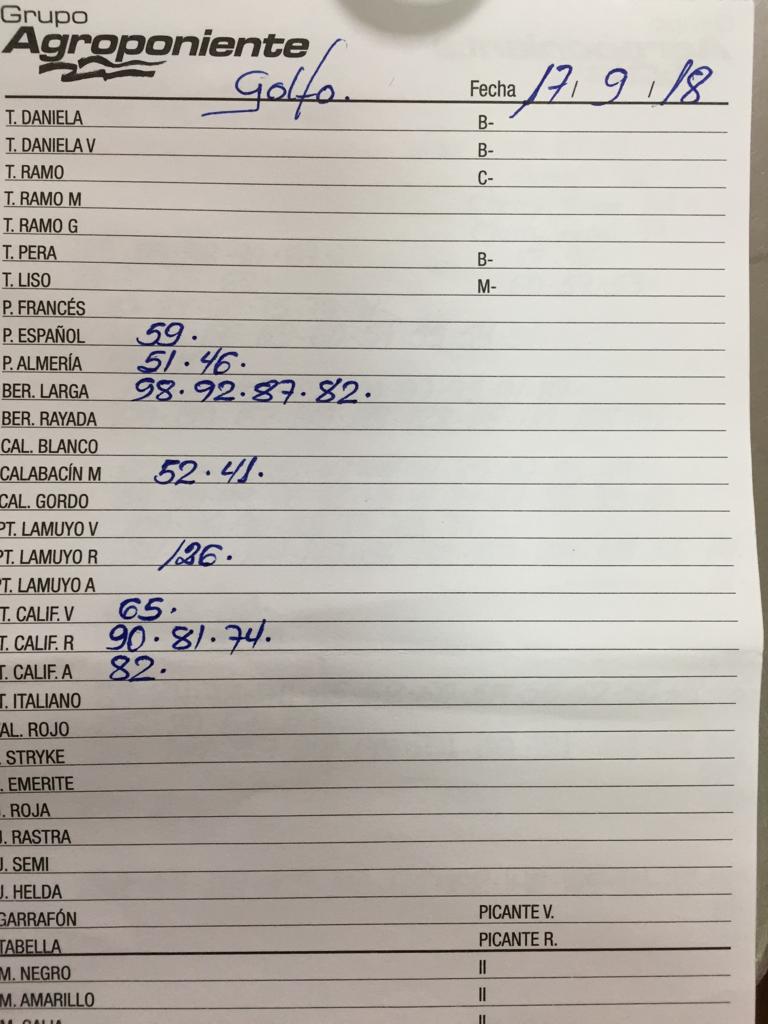 Grupo
Agroponiente
Golfo. Fecha 17 / 9 / 18
T. DANIELA B-
T. DANIELA V B-
T. RAMO C-
T. RAMO M
T. RAMO G
T. PERA B-
T. LISO M-
P. FRANCÉS
P. ESPAÑOL 59.
P. ALMERÍA 51. 46.
BER. LARGA 98. 92. 87. 82.
BER. RAYADA
CAL. BLANCO
CALABACÍN M 52. 41.
CAL. GORDO
PT. LAMUYO V
PT. LAMUYO R 126.
PT. LAMUYO A
T. CALIF. V 65.
T. CALIF. R 90. 81. 74.
T. CALIF. A 82.
T. ITALIANO
AL. ROJO
. STRYKE
. EMERITE
. ROJA
J. RASTRA
J. SEMI
J. HELDA
GARRAFÓN PICANTE V.
TABELLA PICANTE R.
M. NEGRO II
M. AMARILLO II
II